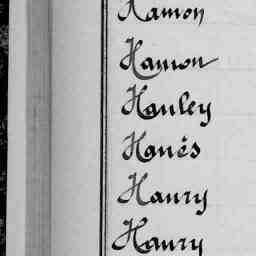 Hamon
Hamon
Hanley
Hanés
Hanry
Hanry